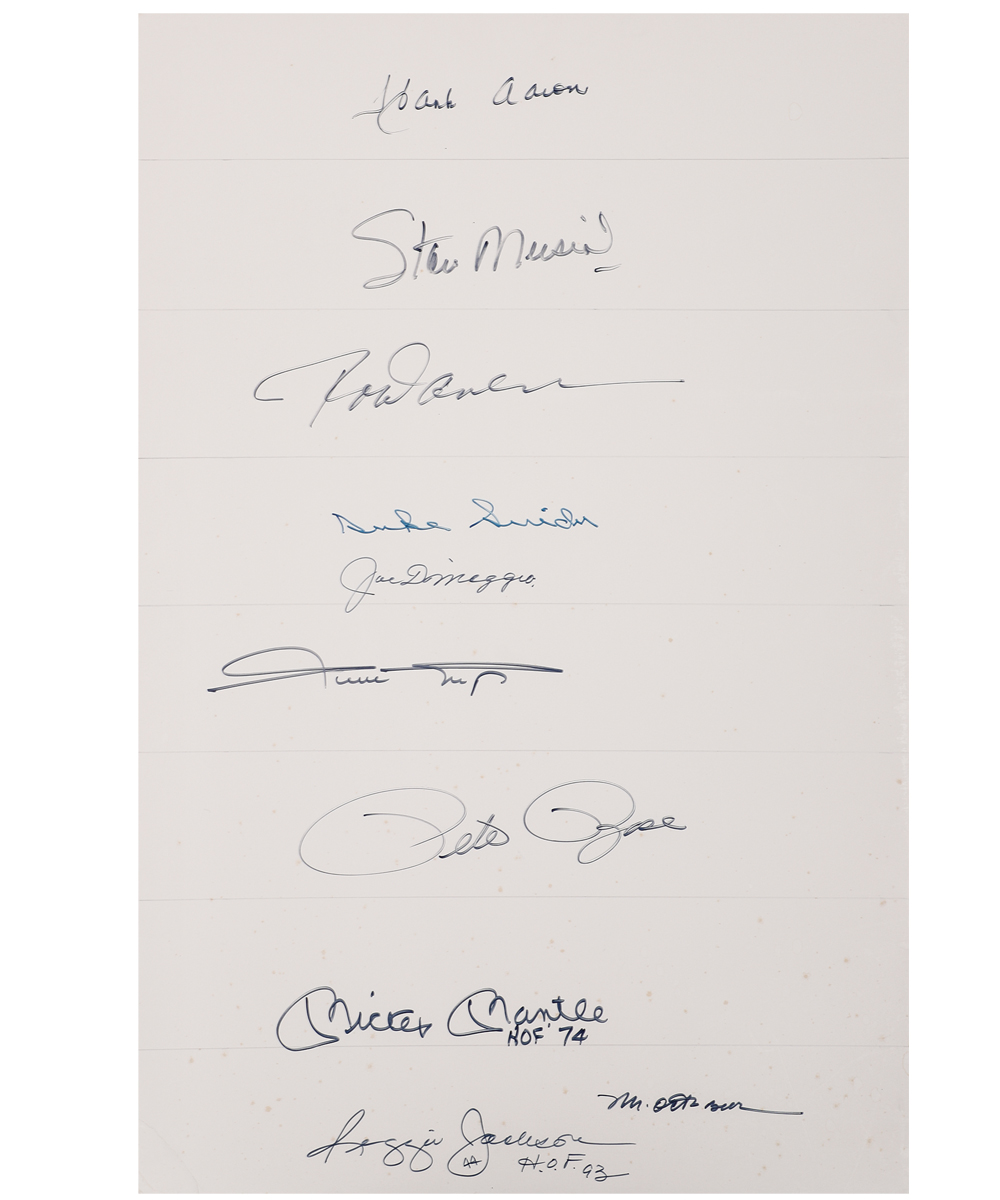 Hank Aaron
Stan Musial
Rod Carew
Duke Snider
Joe DiMaggio
Willie Mays
Pete Rose
Mickey Mantle
HOF '74
Mr. October
Reggie Jackson
44 H.O.F. 93